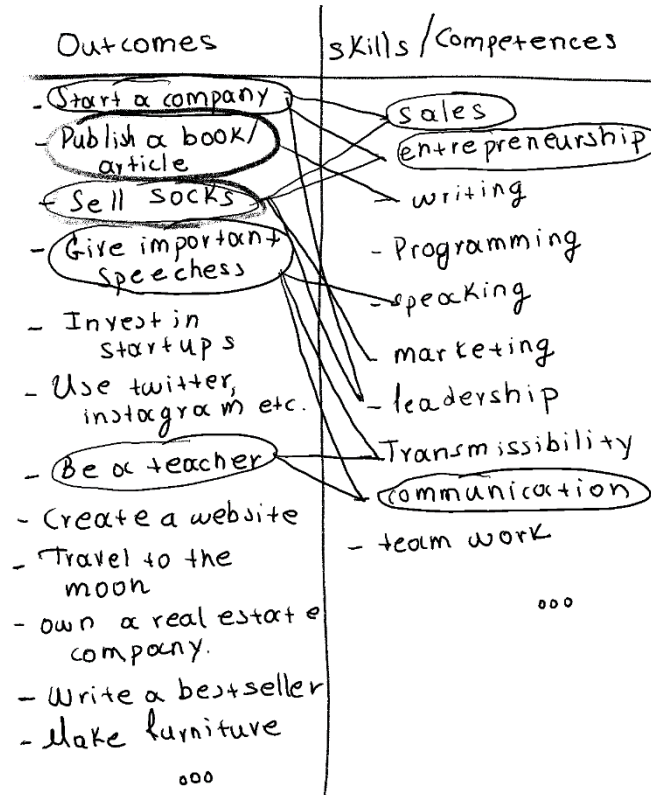 Outcomes
- Start a company
- Publish a book/
article
- Sell socks
- Give important
speechess
- Invest in
startups
- Use twitter,
instagram etc.
- Be a teacher
- Create a website
- Travel to the
moon
- own a real estate
company.
- Write a bestseller
- Make furniture
ooo
skills/Competences
sales
entrepreneurship
- writing
- Programming
- speaking
- marketing
- leadership
- Transmissibility
- communication
- team work
ooo